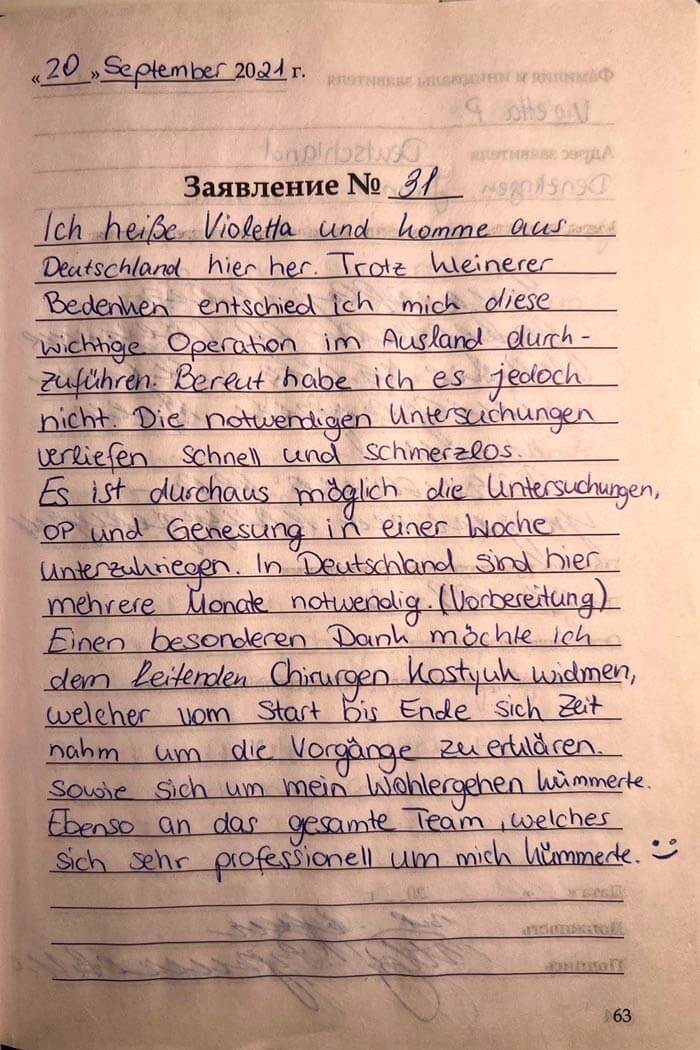 «20» September 2021 г.
Заявление № 31
Ich heiße Violetta und komme aus
Deutschland hier her. Trotz kleinerer
Bedenken entschied ich mich diese
wichtige Operation im Ausland durch-
zuführen. Bereut habe ich es jedoch
nicht. Die notwendigen Untersuchungen
verliefen schnell und schmerzlos.
Es ist durchaus möglich die Untersuchungen,
OP und Genesung in einer Woche
unterzukriegen. In Deutschland sind hier
mehrere Monate notwendig. (Vorbereitung)
Einen besonderen Dank möchte ich
dem Leitenden Chirurgen Kostyuk widmen,
welcher vom Start bis Ende sich Zeit
nahm um die Vorgänge zu erklären.
Sowie sich um mein Wohlergehen kümmerte.
Ebenso an das gesamte Team, welches
sich sehr professionell um mich kümmerte. :)
63